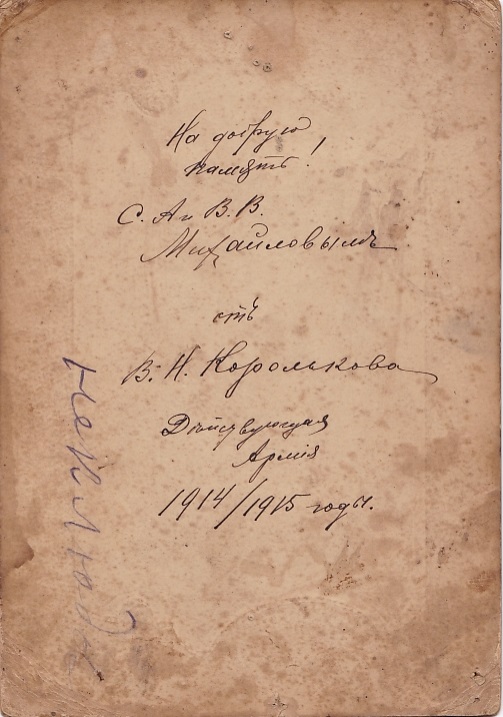 На добрую
память!
С. А и В. В.
Михайловымъ
отъ
В. Н. Королькова
Действующая
Армія
1914/1915 годы.